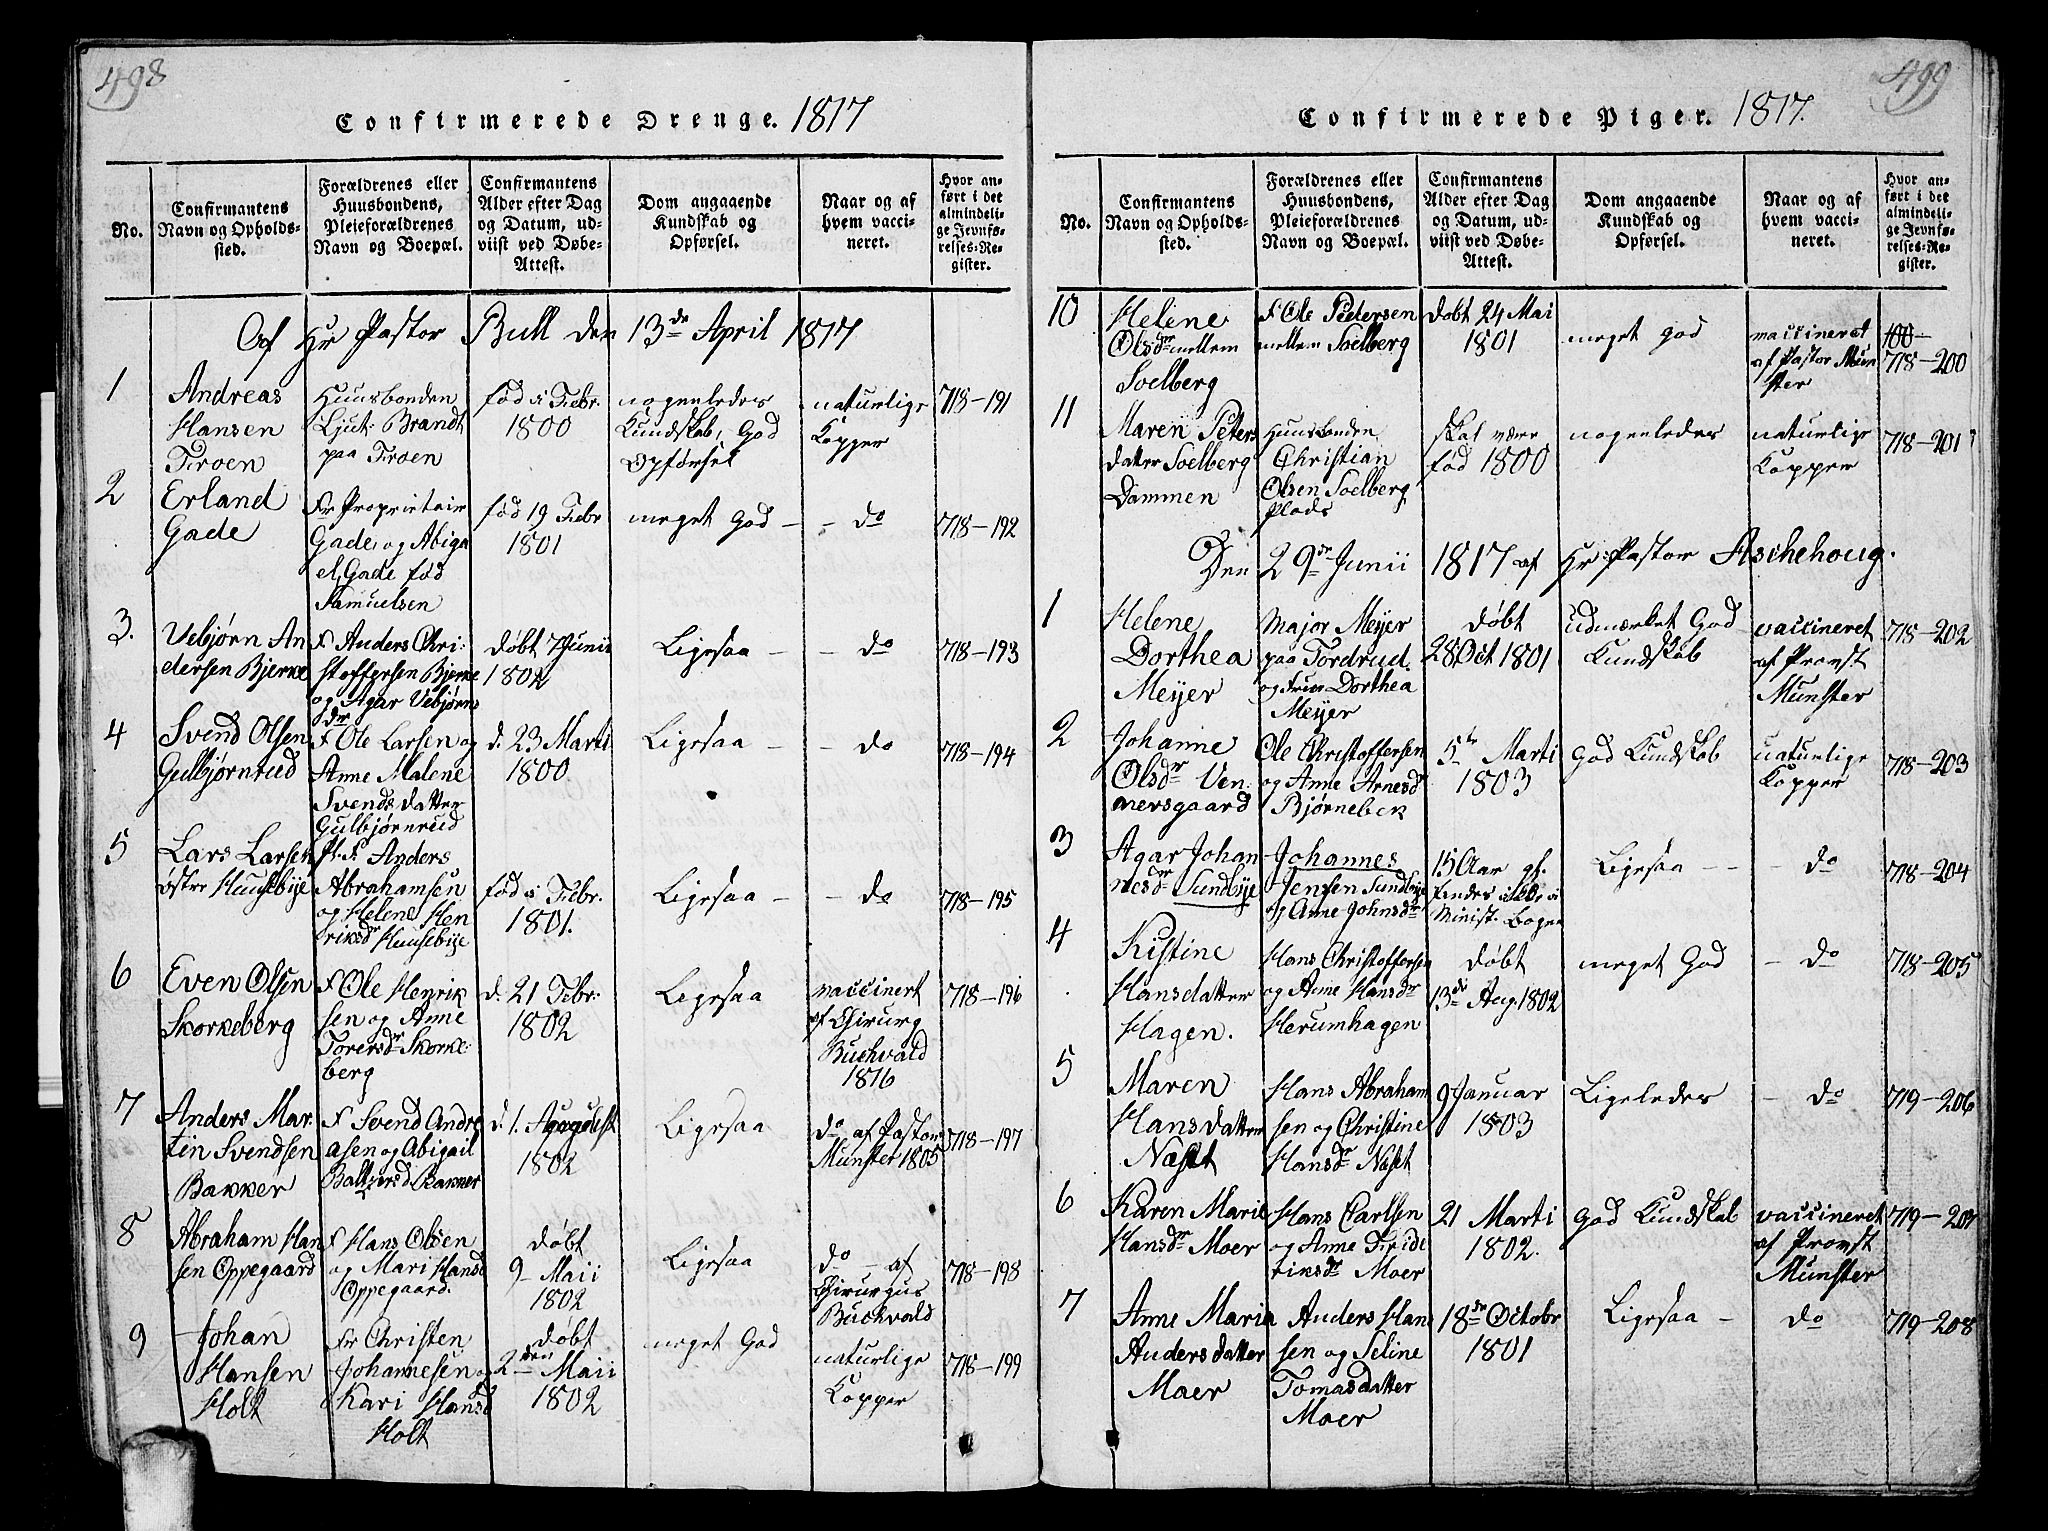 498
Confirmerede Drenge. 1817
No.
Confirmantens
Navn og Opholds-
sted.
Forældrenes eller
Huusbondens,
Pleieforældrenes
Navn og Boepæl.
Confirmantens
Alder efter Dag
og Datum, ud-
viist ved Døbe-
Attest.
Dom angaaende
Kundskab og
Opførsel.
Naar og af
hvem vacci-
neret.
Hvor an-
ført i det
almindeli-
ge Jevnfø-
relses-Re-
gister.
Af Hr Pastor Bull den 13de April 1817
1
Andreas
Hansen
Froen
Huusbonden
Ljut: Brandt
paa Froen
fød i Febr.
1800
nogenledes
Kundskab, God
Opførsel
naturlige
Kopper
718-191
2
Erland
Gade
Fr Proprietair
Gade og Abiga
el Gade fød
Samuelsen
fød 19 Febr
1801
meget God -
- do
718-192
3.
Vebjørn An
dersen Bjerke
F Anders Chri-
stoffersen Bjerke
og Agar Vebjørns
dr
døbt 7 Junii
1802
Ligesaa -
- do
718-193
4
Svend Olsen
Gulbjørnrud
F Ole Larsen og
Anne Malene
Svends datter
Gulbjørnrud
d. 23 Marti
1800
Ligesaa -
- do
718-194
5
Lars Larsen
østre Huusebye
Pl. F. Anders
Abrahamsen
og Helene Hen
riksdr Huusebye
fød i Febr.
1801.
Ligesaa -
- do
718-195
6
Even Olsen
Skorkeberg
F Ole Henrik
sen og Anne
Torersdr Skorke-
berg
d. 21 Febr:
1802
Ligesaa
vaccinert
af Chirurg
Buchvald
1816
718-196
7
Anders Mar-
tin Svendsen
Bakker
F Svend Andre
asen og Abigail
Baltzersd Bakker
d. 1. August
1802
Ligesaa
do af Pastor
Munster 1805
718-197
8
Abraham Han
sen Oppegaard
F Hans Olsen
og Mari Hansd
Oppegaard.
døbt
9- Maii
1802
Ligesaa
do - af
Chirurgus
Buchvald
718-198
9
Johan
Hansen
Holt
Fr Christen
Johannesen og
Kari Hansd
Holt
døbt
2den Maii
1802
meget God
naturlige
Kopper
718-199
499
Confirmerede Piger. 1817.
No.
Confirmantens
Navn og Opholds-
sted.
Forældrenes eller
Huusbondens,
Pleieforældrenes
Navn og Boepæl.
Confirmantens
Alder efter Dag
og Datum, ud-
viist ved Døbe-
Attest.
Dom angaaende
Kundskab og
Opførsel.
Naar og af
hvem vacci-
neret.
Hvor an-
ført i det
almindeli-
ge Jevnfø-
relses-Re-
gister.
10
Helene
Olsdr mellem
Soelberg
F Ole Petersen
mellem Soelberg
døbt 24 Mai
1801
meget god
vaccineret
af Pastor Mün
ster
718-200
11
Maren Peters
datter Soelberg
Dammen
Huusbonden
Christian
Olsen Soelberg
Plads
skal være
fød 1800
nogenledes
naturlige
Kopper
718-201
Den 29de Junii 1817 af Hr Pastor Aschehoug.
1
Helene
Dorthea
Meyer
Major Meyer
paa Tordrud
og Frue Dorthea
Meyer
døbt
28 Oct 1801
udmærket God
Kundskab
vaccineret
af Provst
Munster
718-202
2
Johanne
Olsdr Ven-
nersgaard
Ole Christoffersen
og Anne Arnesdr
Bjørnebek
5te Marti
1803
God Kundskab
naturlige
Kopper
718-203
3
Agar Johan
nesdr Sundbye
Johannes
Jensen Sundbye
og Anne Johnsdr
15 Aar gl.
findes ikke i
Minist. Bogen
Ligesaa - -
- do
718-204
4
Kistine
Hansdatter
Hagen.
Hans Christoffersen
og Anne Hansdr
Herumhagen
døbt
13de Aug. 1802
meget God
- do
718-205
5
Maren
Hansdatter
Næset
Hans Abraham
sen og Christine
Hansdr Næset
9 Januar
1803
Ligeledes
- do
719-206
6
Karen Marie
Hansdr Moer
Hans Carlsen
og Anne Fride
riksdr Moer
21 Marti
1802.
God Kundskab
vaccineret
af Provst
Munster
719-207
7
Anne Maria
Anders datter
Moer
Anders Han
sen og Seline
Tomasdatter
Moer
18de Octobr
1801
Ligesaa -
do
719-208